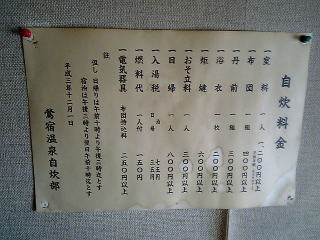 自炊料金
一室料 一人 一、二〇〇円以上
一布団 一組 四〇〇円以上
一丹前 一組 三〇〇円以上
一浴衣 一枚 二〇〇円以上
一炬燵 六〇〇円以上
一おそ立料 一人 五〇〇円以上
一日帰 一人 八〇〇円以上
一入湯税 宿泊 七五円 日帰 三五円
一燃料代 一人付 一五〇円
一電気器具 布団持込料 二五〇円以上
註
但し 日帰りは午前十時より午後三時迄とす
宿泊は午後三時より翌日午前十時迄とす
平成三年十二月一日
鶯宿温泉自炊部